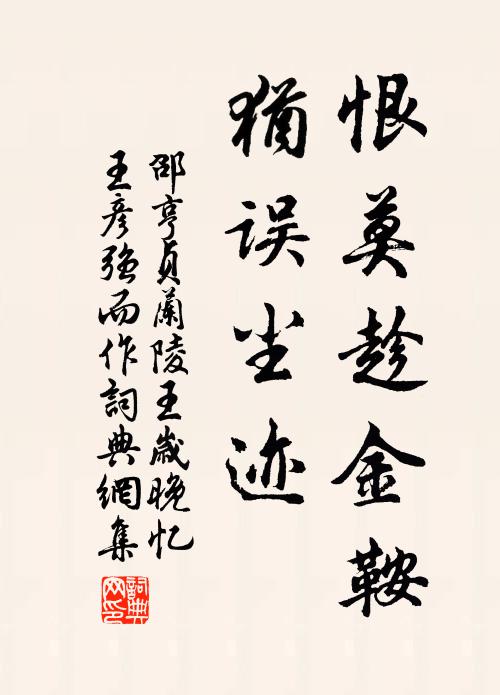 恨莫趁金鞍
猶误尘迹
邵亨贞蘭陵王歲晚忆
王彦强而作詞典網集
詞典網印